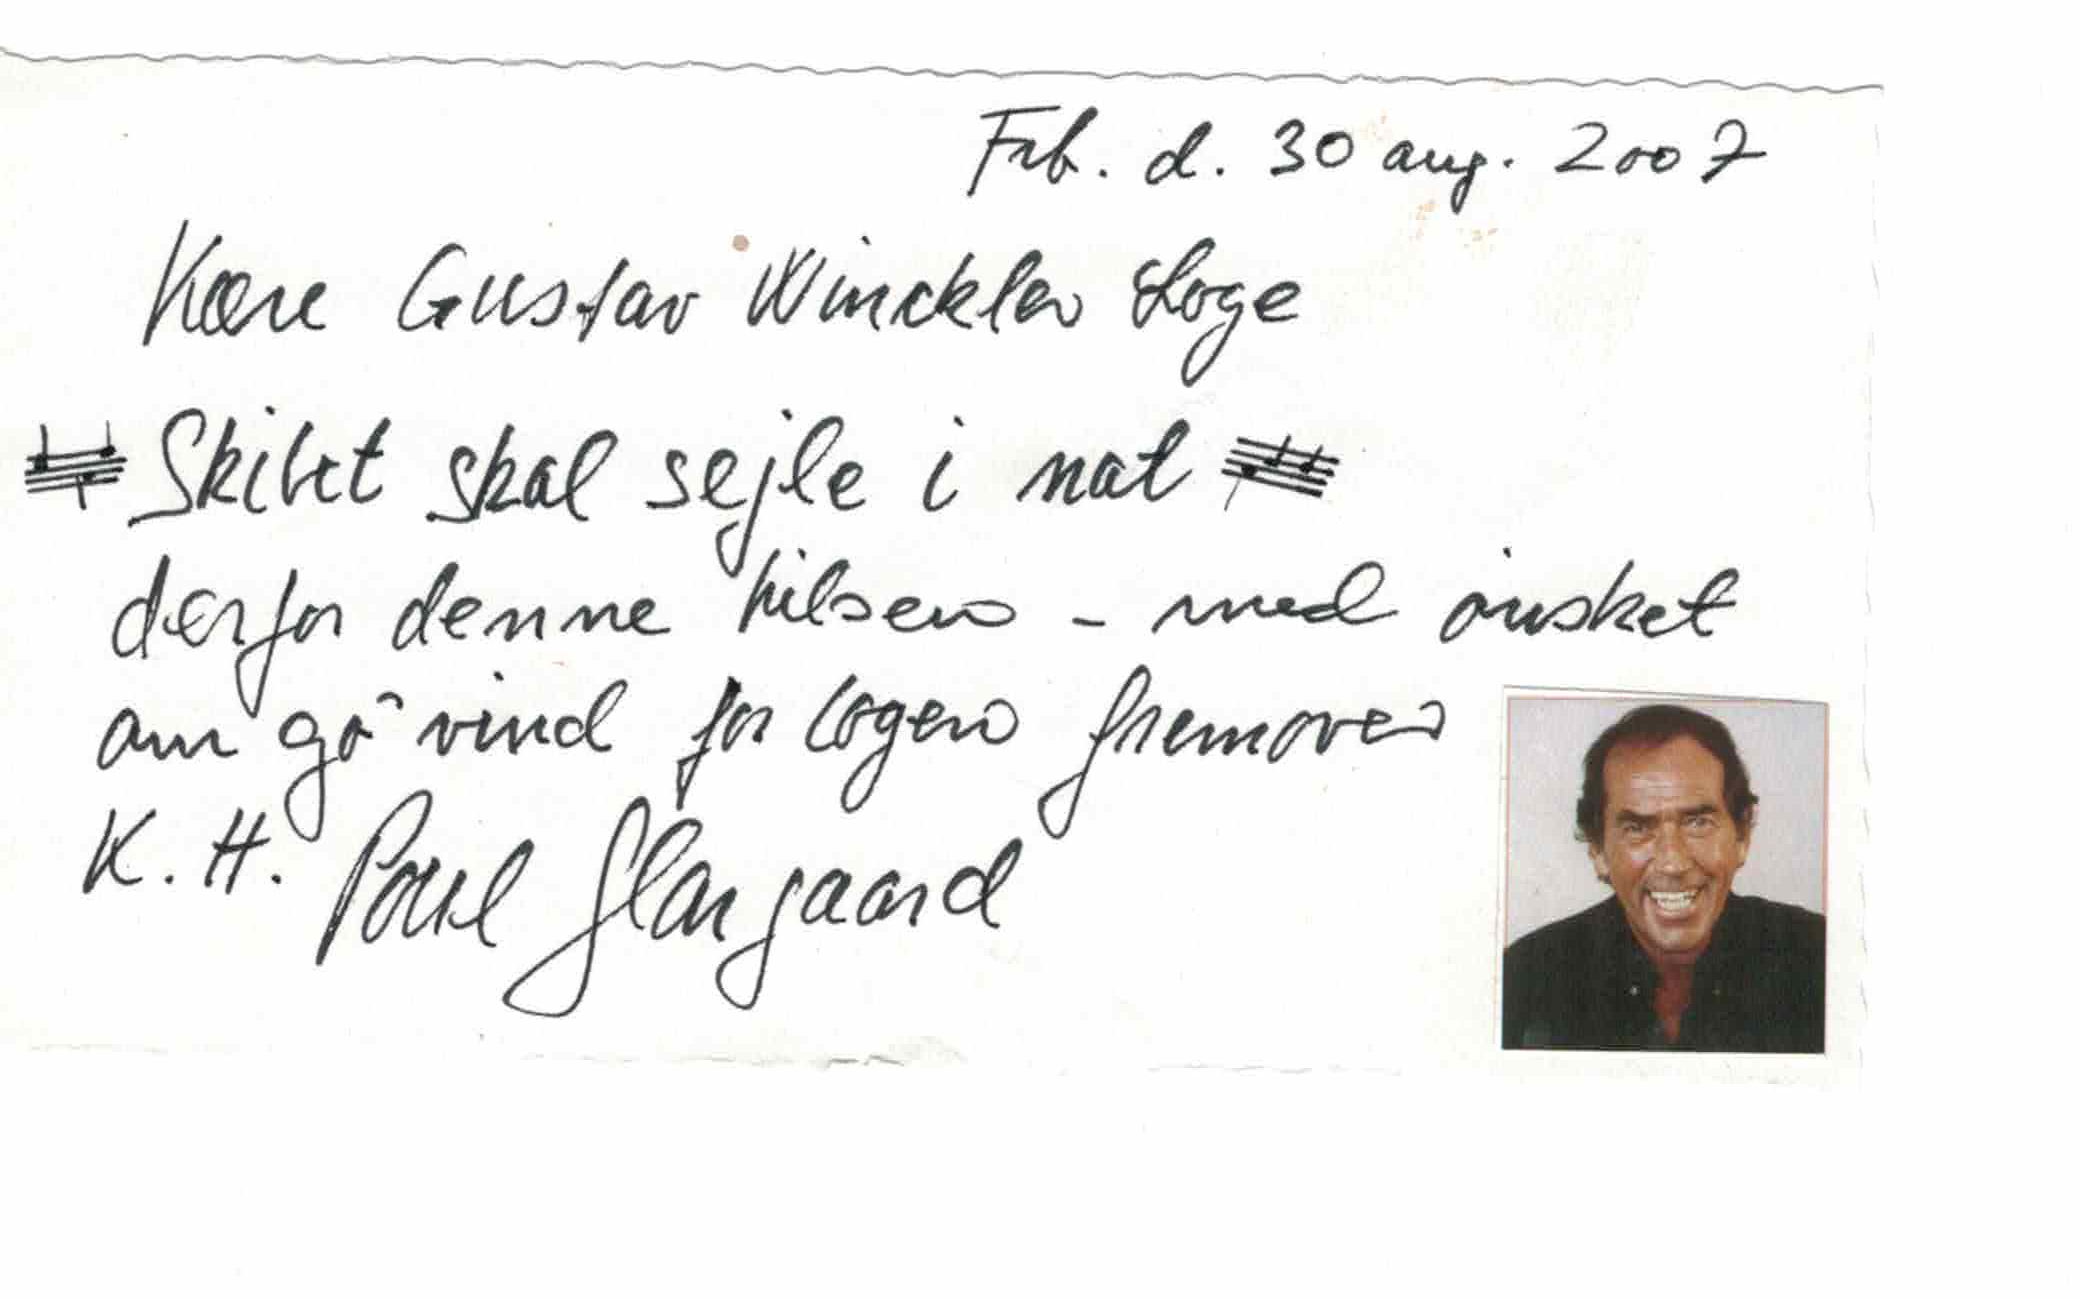 Frb. d. 30 aug. 2007
Kære Gustav Winckler Loge
Skibet skal sejle i nat
derfor denne hilsen - med ønsket
om gå vind for logen fremover
K. H. Poul Glargaard